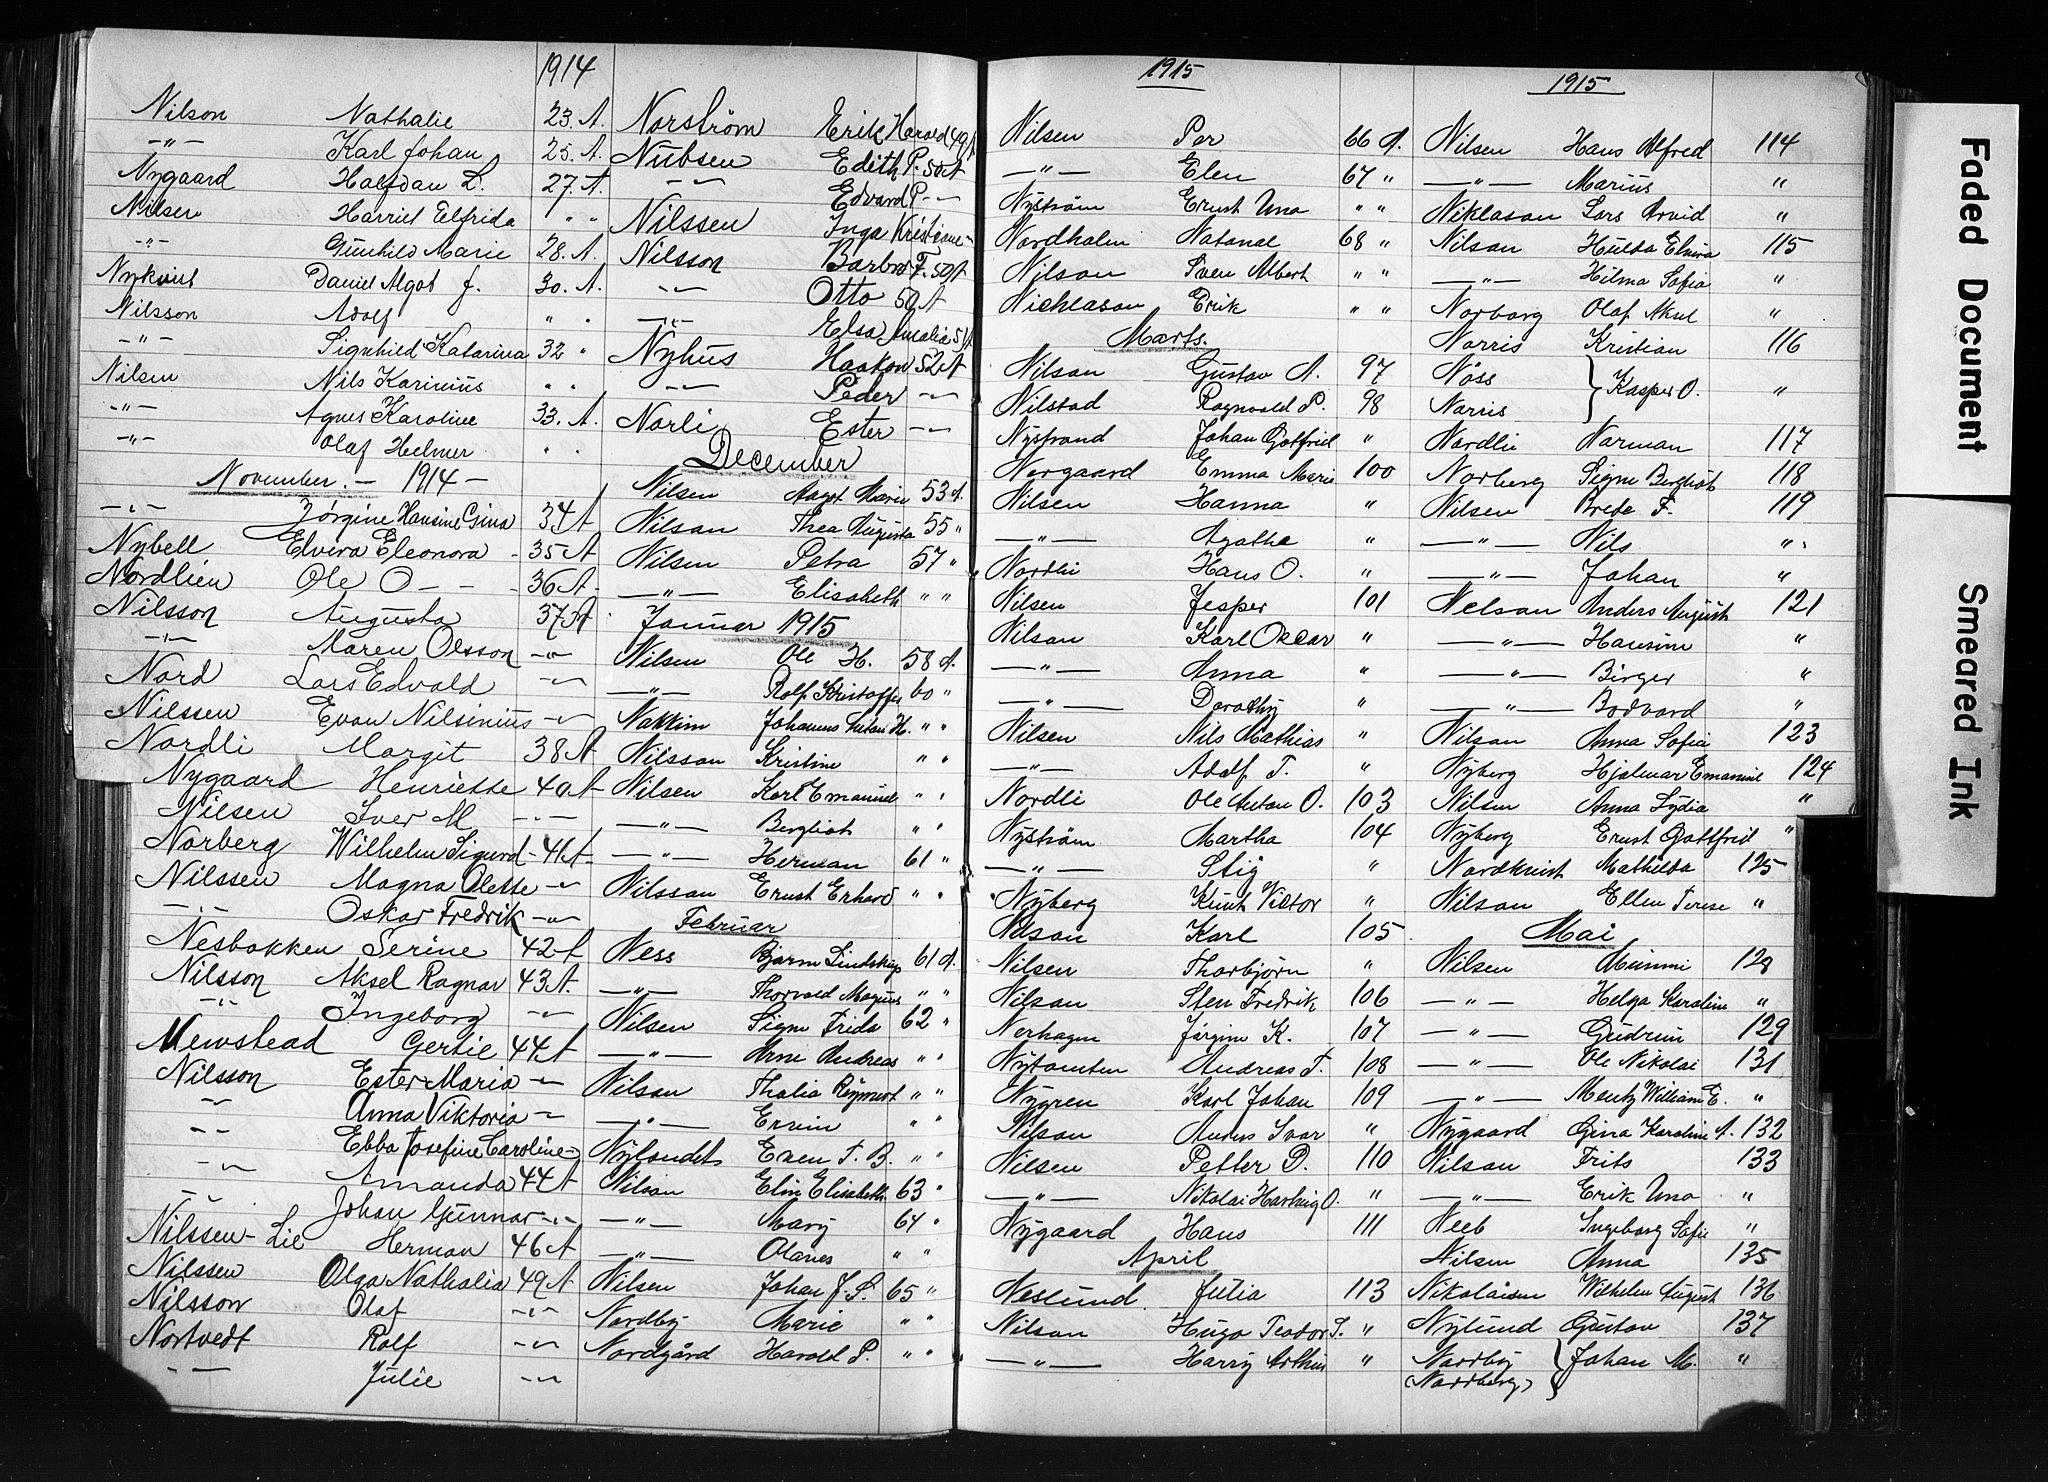 1914
Nilson Nathalie 23. A.
-"- Karl Johan 25. A.
Nygaard Halfdan L. 27. A.
Nilsen Harriet Elfrida " "
-"- Gunhild Marie 28. A.
Nykvist Daniel Algot J. 30. A.
Nilsson Adolf " "
-"- Signhild Katarina 32 "
Nilsen Nils Karinius " "
-"- Agnes Karoline 33. A.
-"- Olaf Helmer " "
November. - 1914 -
-"- Jørgine Hansine Gina 34 A
Nybell Elvera Eleonora - 35 A
Nordlien Ole O - - 36 A
Nilsson Augusta 37 A
-"- Maren Olsson -"-
Nord Lars Edvald -"-
Nilssen Evan Nilsinius -"-
Nordli Margit 38 A
Nygaard Henriette 40 A
Nilsen Iver M -"-
Norberg Wilhelm Sigurd - 41 A
Nilssen Magna Olette -"-
-"- Oskar Fredrik -"-
Nesbakken Serine 42 A
Nilsson Aksel Ragnar 43 A.
-"- Ingeborg -"-
Newstead Gertie 44 A
Nilsson Ester Maria -"-
-"- Anna Viktoria -"-
-"- Ebba Josefine Caroline -"-
-"- Amanda 44 A
-"- Johan Gunnar -"-
Nilssen-Lie Herman 46 A
Nilssen Olga Nathalia 49 A
Nilsson Olaf -"-
Nortvedt Rolf -"-
-"- Julie -"-
Norström Erik Harald 49 A
Nubsen Edith P. 50 A
-"- Edvard P -"-
Nilssen Inga Kristine -
Nilsson Barbro F. 50 A
-"- Otto 50 A
-"- Elsa Amalia 51 A
Nyhus Haakon 52 A
-"- Peder -"-
Norli Ester -"-
December
Nilsen Aagot Marie 53 A.
Nilsan Thea Augusta 55 "
Nilsen Petra 57 "
-"- Elisabeth " "
Januar 1915
Nilsen Ole H. 58 A.
-"- Rolf Kristoffer 60 "
Nakkim Johannes Anton H. " "
Nilsson Kristine " "
Nilsen Karl Emanuel " "
-"- Bergliot " "
-"- Herman 61 "
Nilsson Ernst Erhard " "
Februar
Ness Bjarne Lindskup 61 A.
-"- Thorvald Magnus " "
Nilsen Signe Frida 62 "
-"- Arne Andreas " "
Nilsan Thalia " "
-"- Ervin " "
Nylandet Even T. B. " "
Nilsan Elin Elisabeth 63 "
-"- Mary 64 "
-"- Olanes " "
Nilsen Johan J. S. 65 "
Nordby Marie " "
Nordgård Harald P. " "
1915
Nilsen Per 66 A.
-"- Elen 67 "
Nyström Ernst Uno " "
Nordholm Natanal 68 "
Nilson Sven Albert " "
Nicklason Erik " "
Marts.
Nilsan Gustav A. 97
Nilstad Ragnvald P. 98
Nystrand Johan Gotfried "
Norgaard Emma Marie 100
Nilsen Hanna "
-"- Agathe "
Nordli Hans O. "
Nilsen Jesper 101
Nilsan Karl Oscar "
-"- Anna "
-"- Dorothy "
Nilsen Nils Mathias "
-"- Adolf T. "
Nordli Ole Anton O. 103
Nyström Martha 104
-"- Stig "
Nyberg Knut Victor "
Nilson Karl 105
Nilsen Thorbjørn "
Nilsan Sten Fredrik 106
Nerhagen Jørgine K. 107
Nytomten Andreas T. 108
Nygren Karl Johan 109
Nilsan Anders Ivar "
Nilsen Petter D. 110
-"- Nikolai Hartvig O. "
Nygaard Hans 111
April
Neslund. Julia 113
Nilsan Hugo Teodor T. "
-"- Harry Arthur "
1915
Nilsen Hans Alfred 114
-"- Marius "
Niklasan Lars Arvid "
Nilsan Hulda Elvira 115
-"- Hilma Sofia "
Norborg Olaf Aksel "
Norris Kristian 116
Nöss } Kasper O. "
Narris
Nordlie Norman 117
Norberg Signe Bergliot 118
Nilsen Brede F. 119
-"- Nils "
-"- Johan "
Nelson Anders August 121
-"- Hansine "
-"- Birger "
-"- Bodvard "
Nilsan Anna Sofia 123
Nyberg Hjalmar Emanuel 124
Nilsen Anna Lydia "
Nyberg Ernst Gottfrid "
Nordkvist Mathilda 125
Nilson Ellen Terese "
Mai
Nilsen Mimmi 128
-"- Helga Karoline "
-"- Gudrun 129
-"- Ole Nikolai 131
-"- Mentz William E. "
Nygaard Gina Karoline A. 132
Nilsan Frits 133
-"- Erik Uno "
Neeb Ingeborg Sofie "
Nilsen Anna 135
Nikolaisen Wilhelm August 136
Nylund Gustav 137
Nordby } Johan M. "
(Nordberg)
Faded Document
Smeared Ink